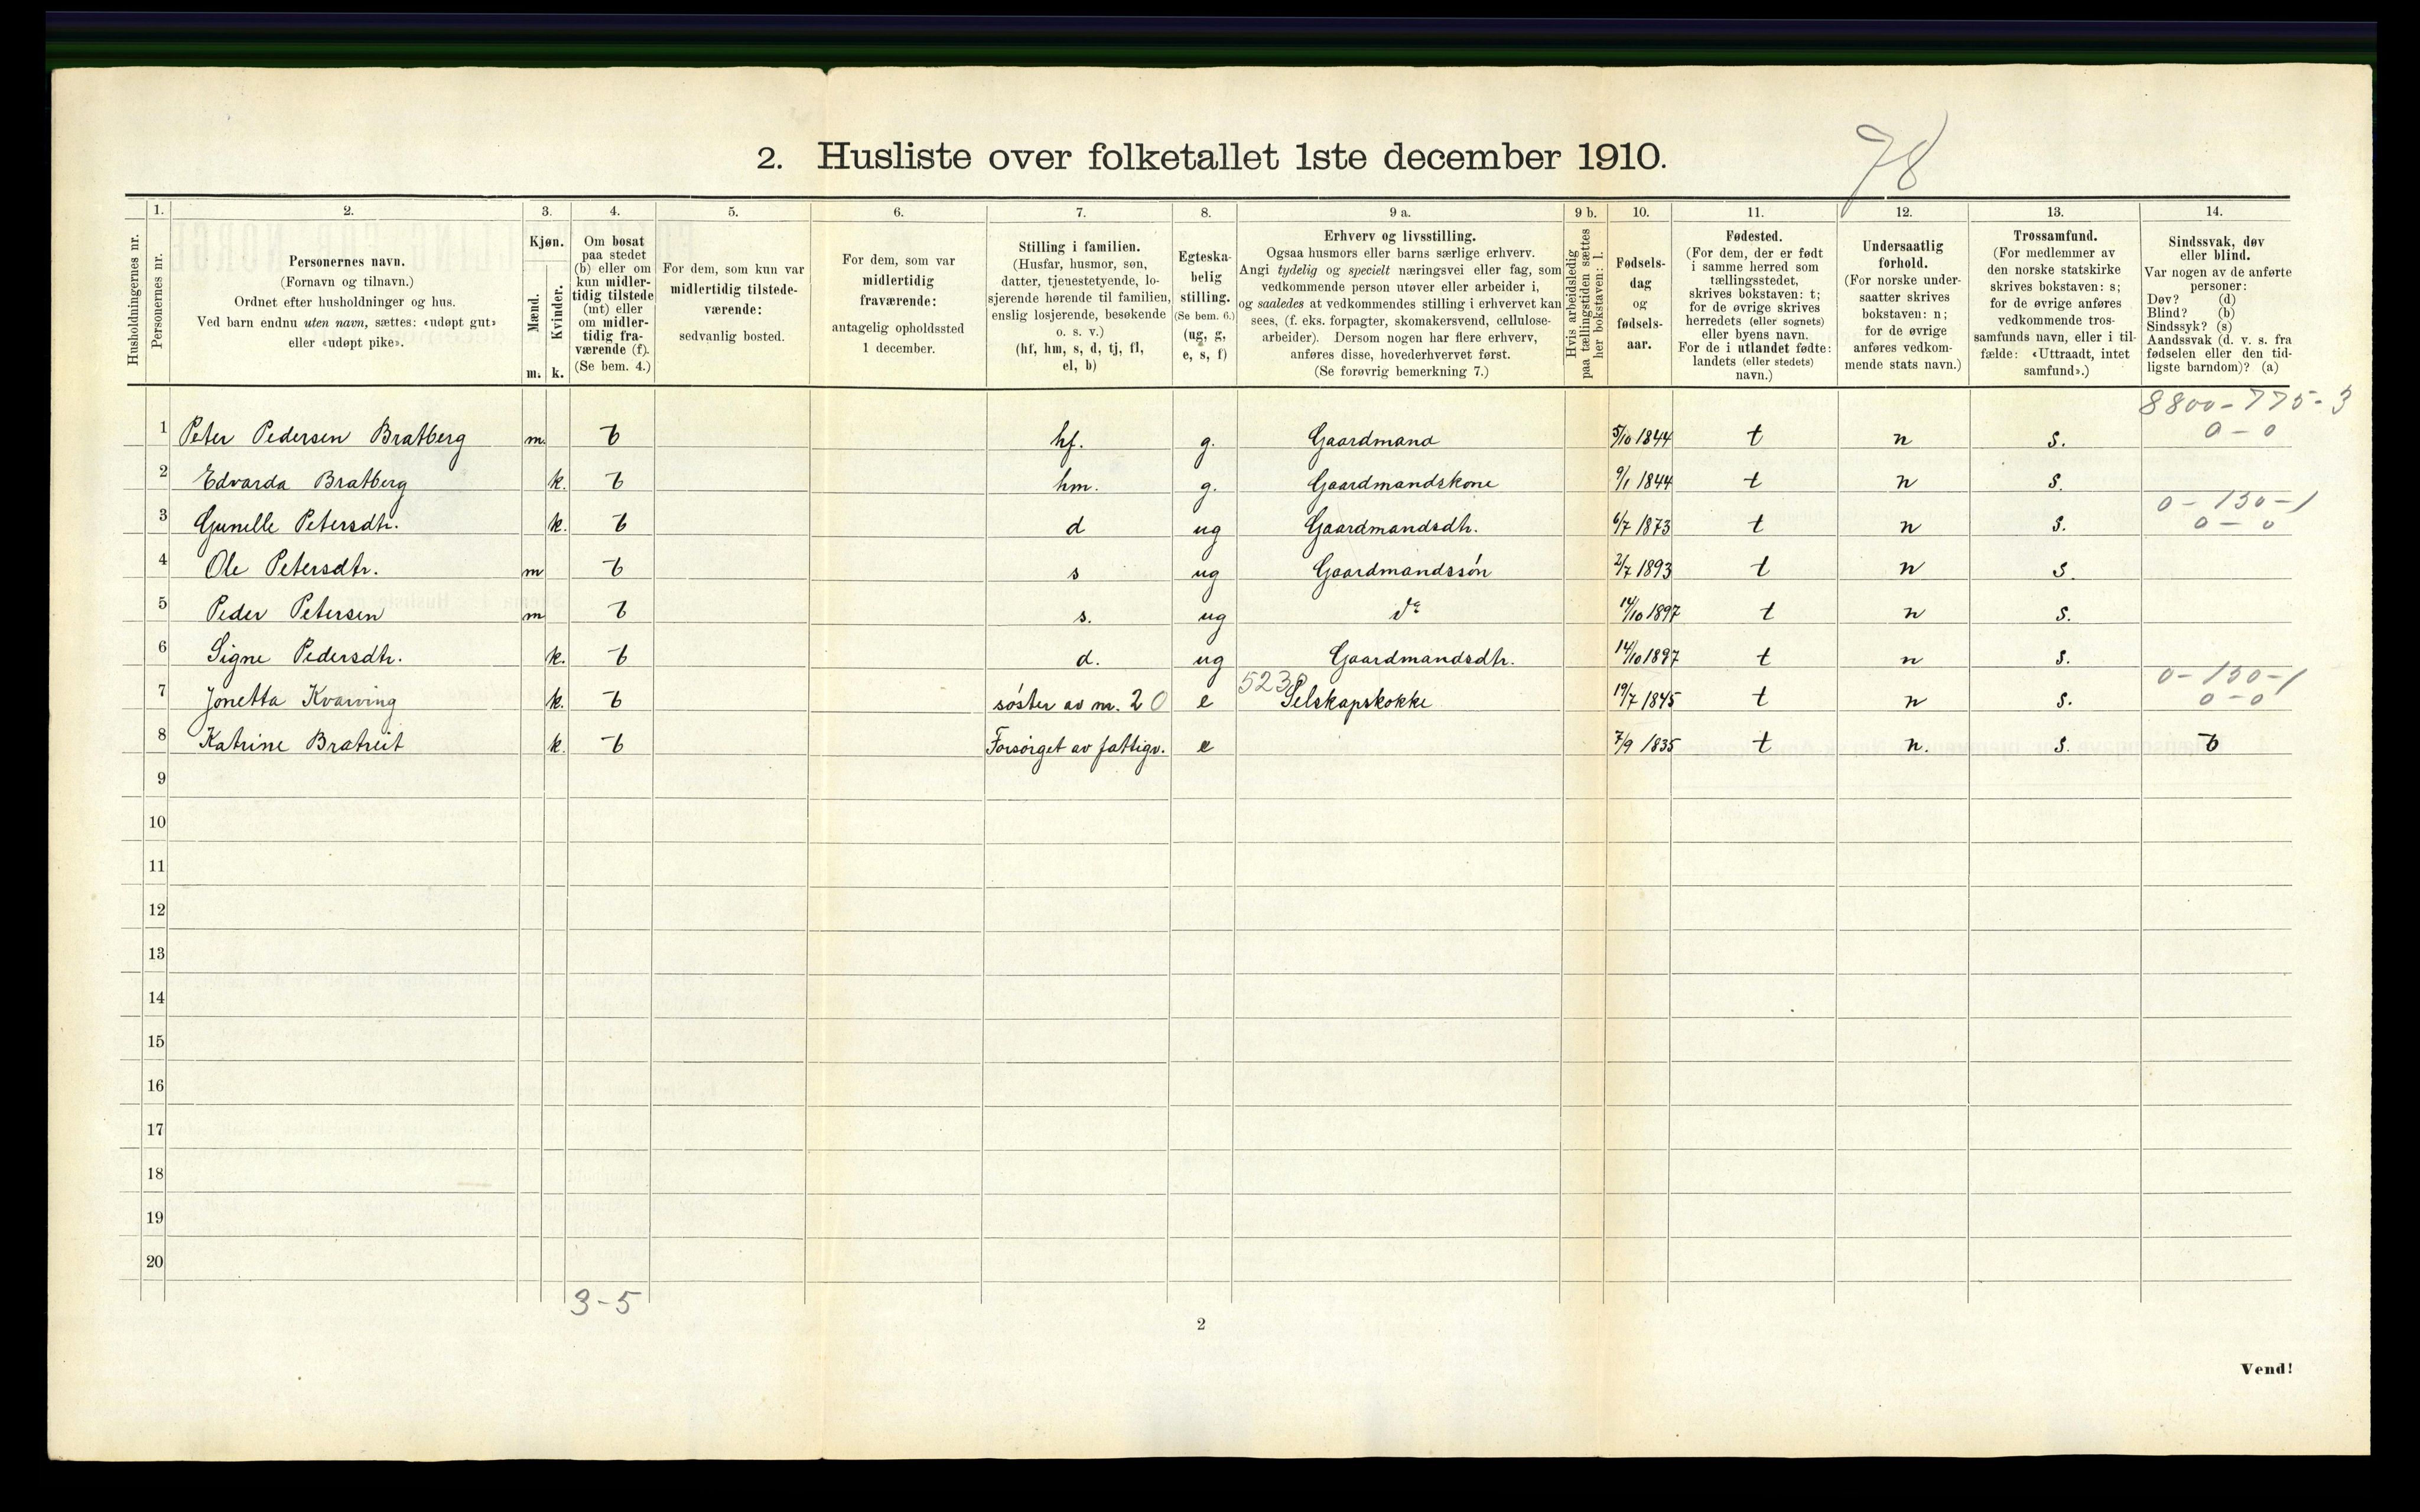 78
2. Husliste over folketallet 1ste december 1910.
Husholdningernes nr.
1. Personernes nr.
2. Personernes navn.
(Fornavn og tilnavn.)
Ordnet efter husholdninger og hus.
Ved barn endnu uten navn, sættes: «udøpt gut»
eller «udøpt pike».
3. Kjøn.
Mænd. m.
Kvinder. k.
4. Om bosat
paa stedet
(b) eller om
kun midler-
tidig tilstede
(mt) eller
om midler-
tidig fra-
værende (f).
(Se bem. 4.)
5. For dem, som kun var
midlertidig tilstede-
værende:
sedvanlig bosted.
6. For dem, som var
midlertidig
fraværende:
antagelig opholdssted
1 december.
7. Stilling i familien.
(Husfar, husmor, søn,
datter, tjenestetyende, lo-
sjerende hørende til familien,
enslig losjerende, besøkende
o. s. v.)
(hf, hm, s, d, tj, fl,
el, b)
8. Egteska-
belig
stilling.
(Se bem. 6.)
(ug, g,
e, s, f)
9 a. Erhverv og livsstilling.
Ogsaa husmors eller barns særlige erhverv.
Angi tydelig og specielt næringsvei eller fag, som
vedkommende person utøver eller arbeider i,
og saaledes at vedkommendes stilling i erhvervet kan
sees, (f. eks. forpagter, skomakersvend, cellulose-
arbeider). Dersom nogen har flere erhverv,
anføres disse, hovederhvervet først.
(Se forøvrig bemerkning 7.)
9 b. Hvis arbeidsledig
paa tællingstiden sættes
her bokstaven: l.
10. Fødsels-
dag
og
fødsels-
aar.
11. Fødested.
(For dem, der er født
i samme herred som
tællingsstedet,
skrives bokstaven: t;
for de øvrige skrives
herredets (eller sognets)
eller byens navn.
For de i utlandet fødte:
landets (eller stedets)
navn.)
12. Undersaatlig
forhold.
(For norske under-
saatter skrives
bokstaven: n;
for de øvrige
anføres vedkom-
mende stats navn.)
13. Trossamfund.
(For medlemmer av
den norske statskirke
skrives bokstaven: s;
for de øvrige anføres
vedkommende tros-
samfunds navn, eller i til-
fælde: «Uttraadt, intet
samfund».)
14. Sindssvak, døv
eller blind.
Var nogen av de anførte
personer:
Døv? (d)
Blind? (b)
Sindssyk? (s)
Aandssvak (d. v. s. fra
fødselen eller den tid-
ligste barndom)? (a)
8800-775-3
1 Peter Pedersen Bratberg m. b hf. g. Gaardmand 5/10 1844 t n s. 0-0
2 Edvarda Bratberg k. b hm. g. Gaardmandskone 9/1 1844 t n s.
0-130-1
3 Gunelle Petersdtr. k. b d ug Gaardmandsdtr. 6/7 1873 t n s. 0-0
4 Ole Petersdtr. m b s ug Gaardmandssøn 2/7 1893 t n s.
5 Peder Petersen m b s. ug do 14/10 1897 t n s.
6 Signe Pedersdtr. k. b d. ug Gaardmandsdtr. 14/10 1897 t n s.
0-130-1
7 Jonetta Kvarving k. b søster av nr. 2 0 e Selskapskokke 19/7 1845 t n s. 0-0
8 Katrine Bratreit k. b Forsørget av fattigv. e 7/9 1835 t n. s. b
9
10
11
12
13
14
15
16
17
18
19
20
3-5
2
Vend!